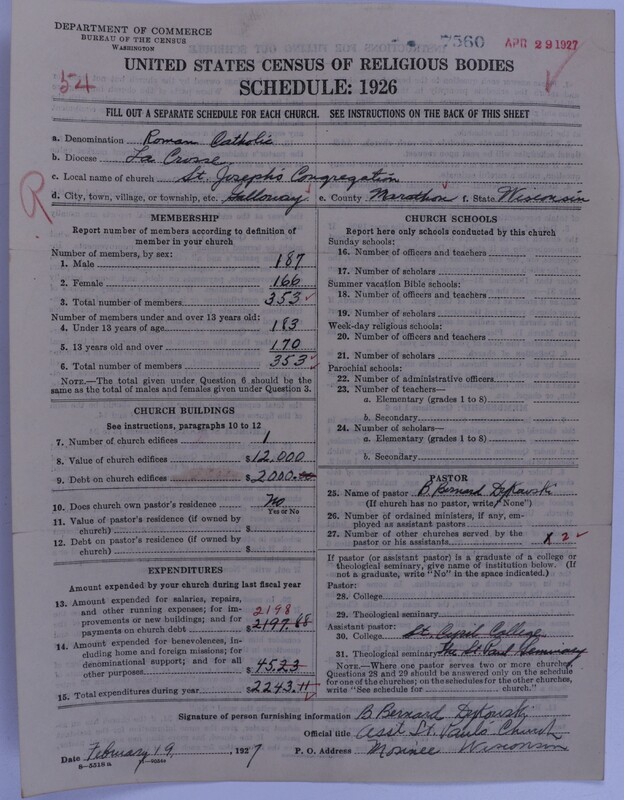 DEPARTMENT OF COMMERCE
BUREAU OF THE CENSUS
WASHINGTON
7560
APR 29 1927
UNITED STATES CENSUS OF RELIGIOUS BODIES
SCHEDULE: 1926
54
FILL OUT A SEPARATE SCHEDULE FOR EACH CHURCH. SEE INSTRUCTIONS ON THE BACK OF THIS SHEET
a. Denomination Roman Catholic
b. Diocese La Crosse
c. Local name of church St. Joseph's Congregation
d. City, town, village, or township, etc. Galloway e. County Marathon f. State Wisconsin
R
MEMBERSHIP
Report number of members according to definition of member in your church
Number of members, by sex:
1. Male 187
2. Female 166
3. Total number of members 353
Number of members under and over 13 years old:
4. Under 13 years of age 183
5. 13 years old and over 170
6. Total number of members 353
NOTE.—The total given under Question 6 should be the same as the total of males and females given under Question 3.
CHURCH BUILDINGS
See instructions, paragraphs 10 to 12
7. Number of church edifices 1
8. Value of church edifices $12,000
9. Debt on church edifices $2000.00
10. Does church own pastor's residence? No
Yes or No
11. Value of pastor's residence (if owned by church) $
12. Debt on pastor's residence (if owned by church) $
EXPENDITURES
Amount expended by your church during last fiscal year
13. Amount expended for salaries, repairs, and other running expenses; for improvements or new buildings; and for payments on church debt 2198 $2197.88
14. Amount expended for benevolences, including home and foreign missions; for denominational support; and for all other purposes $45.23
15. Total expenditures during year $2243.11
CHURCH SCHOOLS
Report here only schools conducted by this church
Sunday schools:
16. Number of officers and teachers
17. Number of scholars
Summer vacation Bible schools:
18. Number of officers and teachers
19. Number of scholars
Week-day religious schools:
20. Number of officers and teachers
21. Number of scholars
Parochial schools:
22. Number of administrative officers
23. Number of teachers—
a. Elementary (grades 1 to 8)
b. Secondary
24. Number of scholars—
a. Elementary (grades 1 to 8)
b. Secondary
PASTOR
25. Name of pastor B. Bernard Dykowski
(If church has no pastor, write "None")
26. Number of ordained ministers, if any, employed as assistant pastors
27. Number of other churches served by the pastor or his assistants x 2
If pastor (or assistant pastor) is a graduate of a college or theological seminary, give name of institution below. (If not a graduate, write "No" in the space indicated.)
Pastor:
28. College
29. Theological seminary
Assistant pastor:
30. College St. Cyril College
31. Theological seminary The St. Paul Seminary
NOTE.—Where one pastor serves two or more churches, Questions 28 and 29 should be answered only on the schedule for one of the churches; on the schedules for the other churches, write "See schedule for church."
Signature of person furnishing information B. Bernard Dykowski
Official title Asst St. Paul's Church
Date February 19, 1927
P. O. Address Mosinee Wisconsin
8—5318a